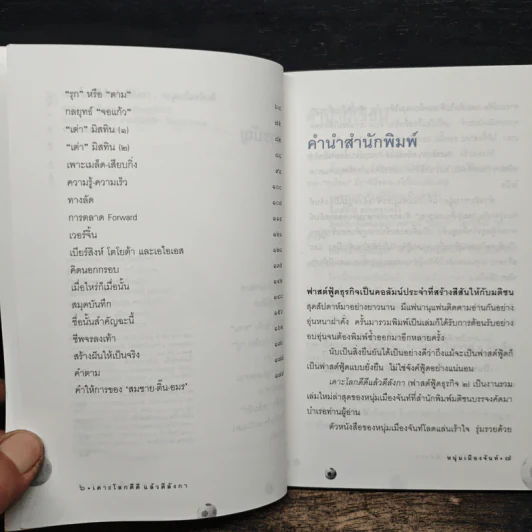 "รุก" หรือ "ตาม"
กลยุทธ์ "จอแก้ว"
"เต่า" มิสทิน (๑)
"เต่า" มิสทิน (๒)
เพาะเมล็ด-เสียบกิ่ง
ความรู้-ความเร็ว
ทางลัด
การตลาด Forward
เวอร์จิ้น
เบียร์สิงห์ โตโยต้า และเอไอเอส
คิดนอกกรอบ
เมื่อไหร่ก็เมื่อนั้น
สมุดบันทึก
ชื่อนั้นสำคัญฉะนี้
ชีพจรลงเท้า
สร้างฝันให้เป็นจริง
คำถาม
คำให้การของ "สมชาย-ติ๊น-อมร"
๖ • เตาะโลกดีดี แล้วตีลังกา
คำนำสำนักพิมพ์
ฟาสต์ฟู้ดธุรกิจเป็นคอลัมน์ประจำที่สร้างสีสันให้กับมติชน
สุดสัปดาห์มาอย่างยาวนาน มีแฟนานุแฟนติดตามอ่านกันอย่าง
อุ่นหนาฝาคั่ง ครั้นมารวมพิมพ์เป็นเล่มก็ได้รับการต้อนรับอย่าง
อบอุ่นจนต้องพิมพ์ซ้ำออกมาอีกหลายครั้ง
นับเป็นสิ่งยืนยันได้เป็นอย่างดีว่าถึงแม้จะเป็นฟาสต์ฟู้ดก็
เป็นฟาสต์ฟู้ดแบบยั่งยืน ไม่ใช่จังค์ฟู้ดอย่างแน่นอน
เตาะโลกดีดีแล้วตีลังกา (ฟาสต์ฟู้ดธุรกิจ ๒) เป็นงานรวม
เล่มใหม่ล่าสุดของหนุ่มเมืองจันท์ที่สำนักพิมพ์มติชนบรรจงคัดมา
บำเรอท่านผู้อ่าน
ตัวหนังสือของหนุ่มเมืองจันท์โลดแล่นเร้าใจ รุ่มรวยด้วย
หนุ่มเมืองจันท์ • ๗